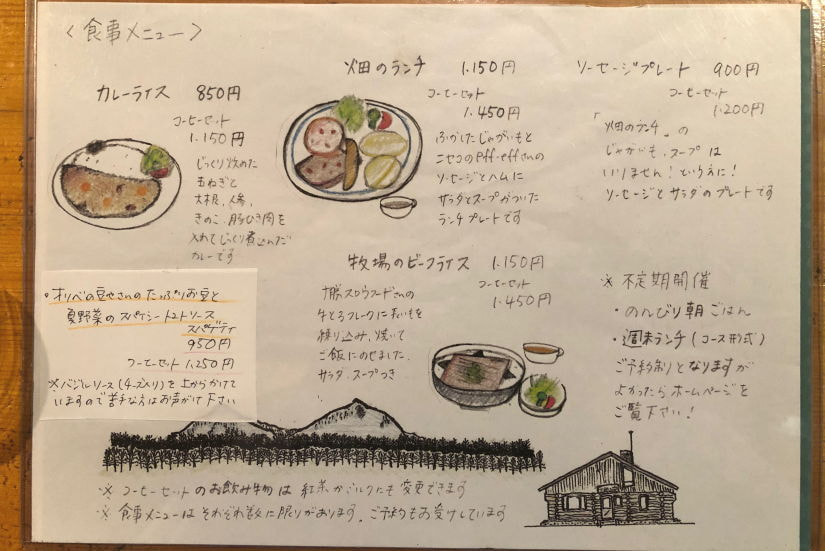 〈食事メニュー〉
カレーライス 850円
コーヒーセット
1.150円
じっくり炒めた
玉ねぎと
大根、人参、
きのこ、豚ひき肉を
入れてじっくり煮込んだ
カレーです
畑のランチ 1.150円
コーヒーセット
1.450円
ふかしたじゃがいもと
ニセコのeff-effさんの
ソーセージとハムに
サラダとスープがついた
ランチプレートです
ソーセージプレート 900円
コーヒーセット
1.200円
「畑のランチ」の
じゃがいも、スープは
いりません!という方に!
ソーセージとサラダのプレートです
・オリベの豆やさんのたっぷりお豆と
夏野菜のスパイシートマトソース
スパゲティ
950円
コーヒーセット 1.250円
※バジルソース(チーズ入り)を上からかけて
いますので苦手な方はお声がけ下さい
牧場のビーフライス 1.150円
コーヒーセット
1.450円
十勝スロウフードさんの
牛とろフレークに長いもを
練り込み、焼いて
ご飯にのせました。
サラダ、スープつき
※ 不定期開催
・のんびり朝ごはん
・週末ランチ(コース形式)
ご予約制となりますが
よかったらホームページを
ご覧下さい!
※ コーヒーセットのお飲み物は紅茶かミルクにも変更できます
※ 食事メニューはそれぞれ数に限りがあります。ご予約もお受けしています